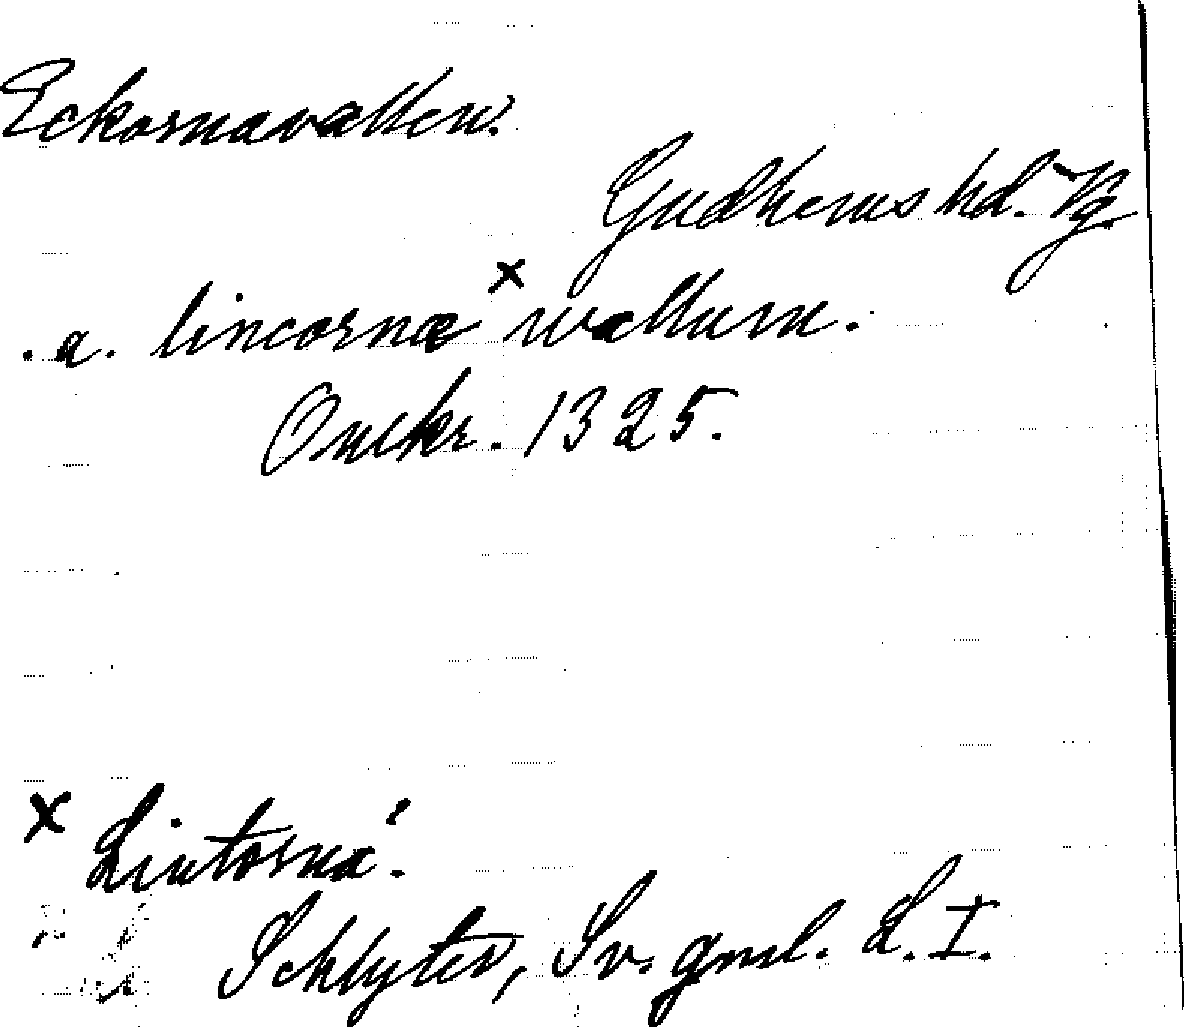 Eckornavallen.
Gudhems hd. Vg.
. a. lincornæ × wallum.
Onckr. 1325.
× Lintorna.
Schlyter, Sv. gml. L. I.